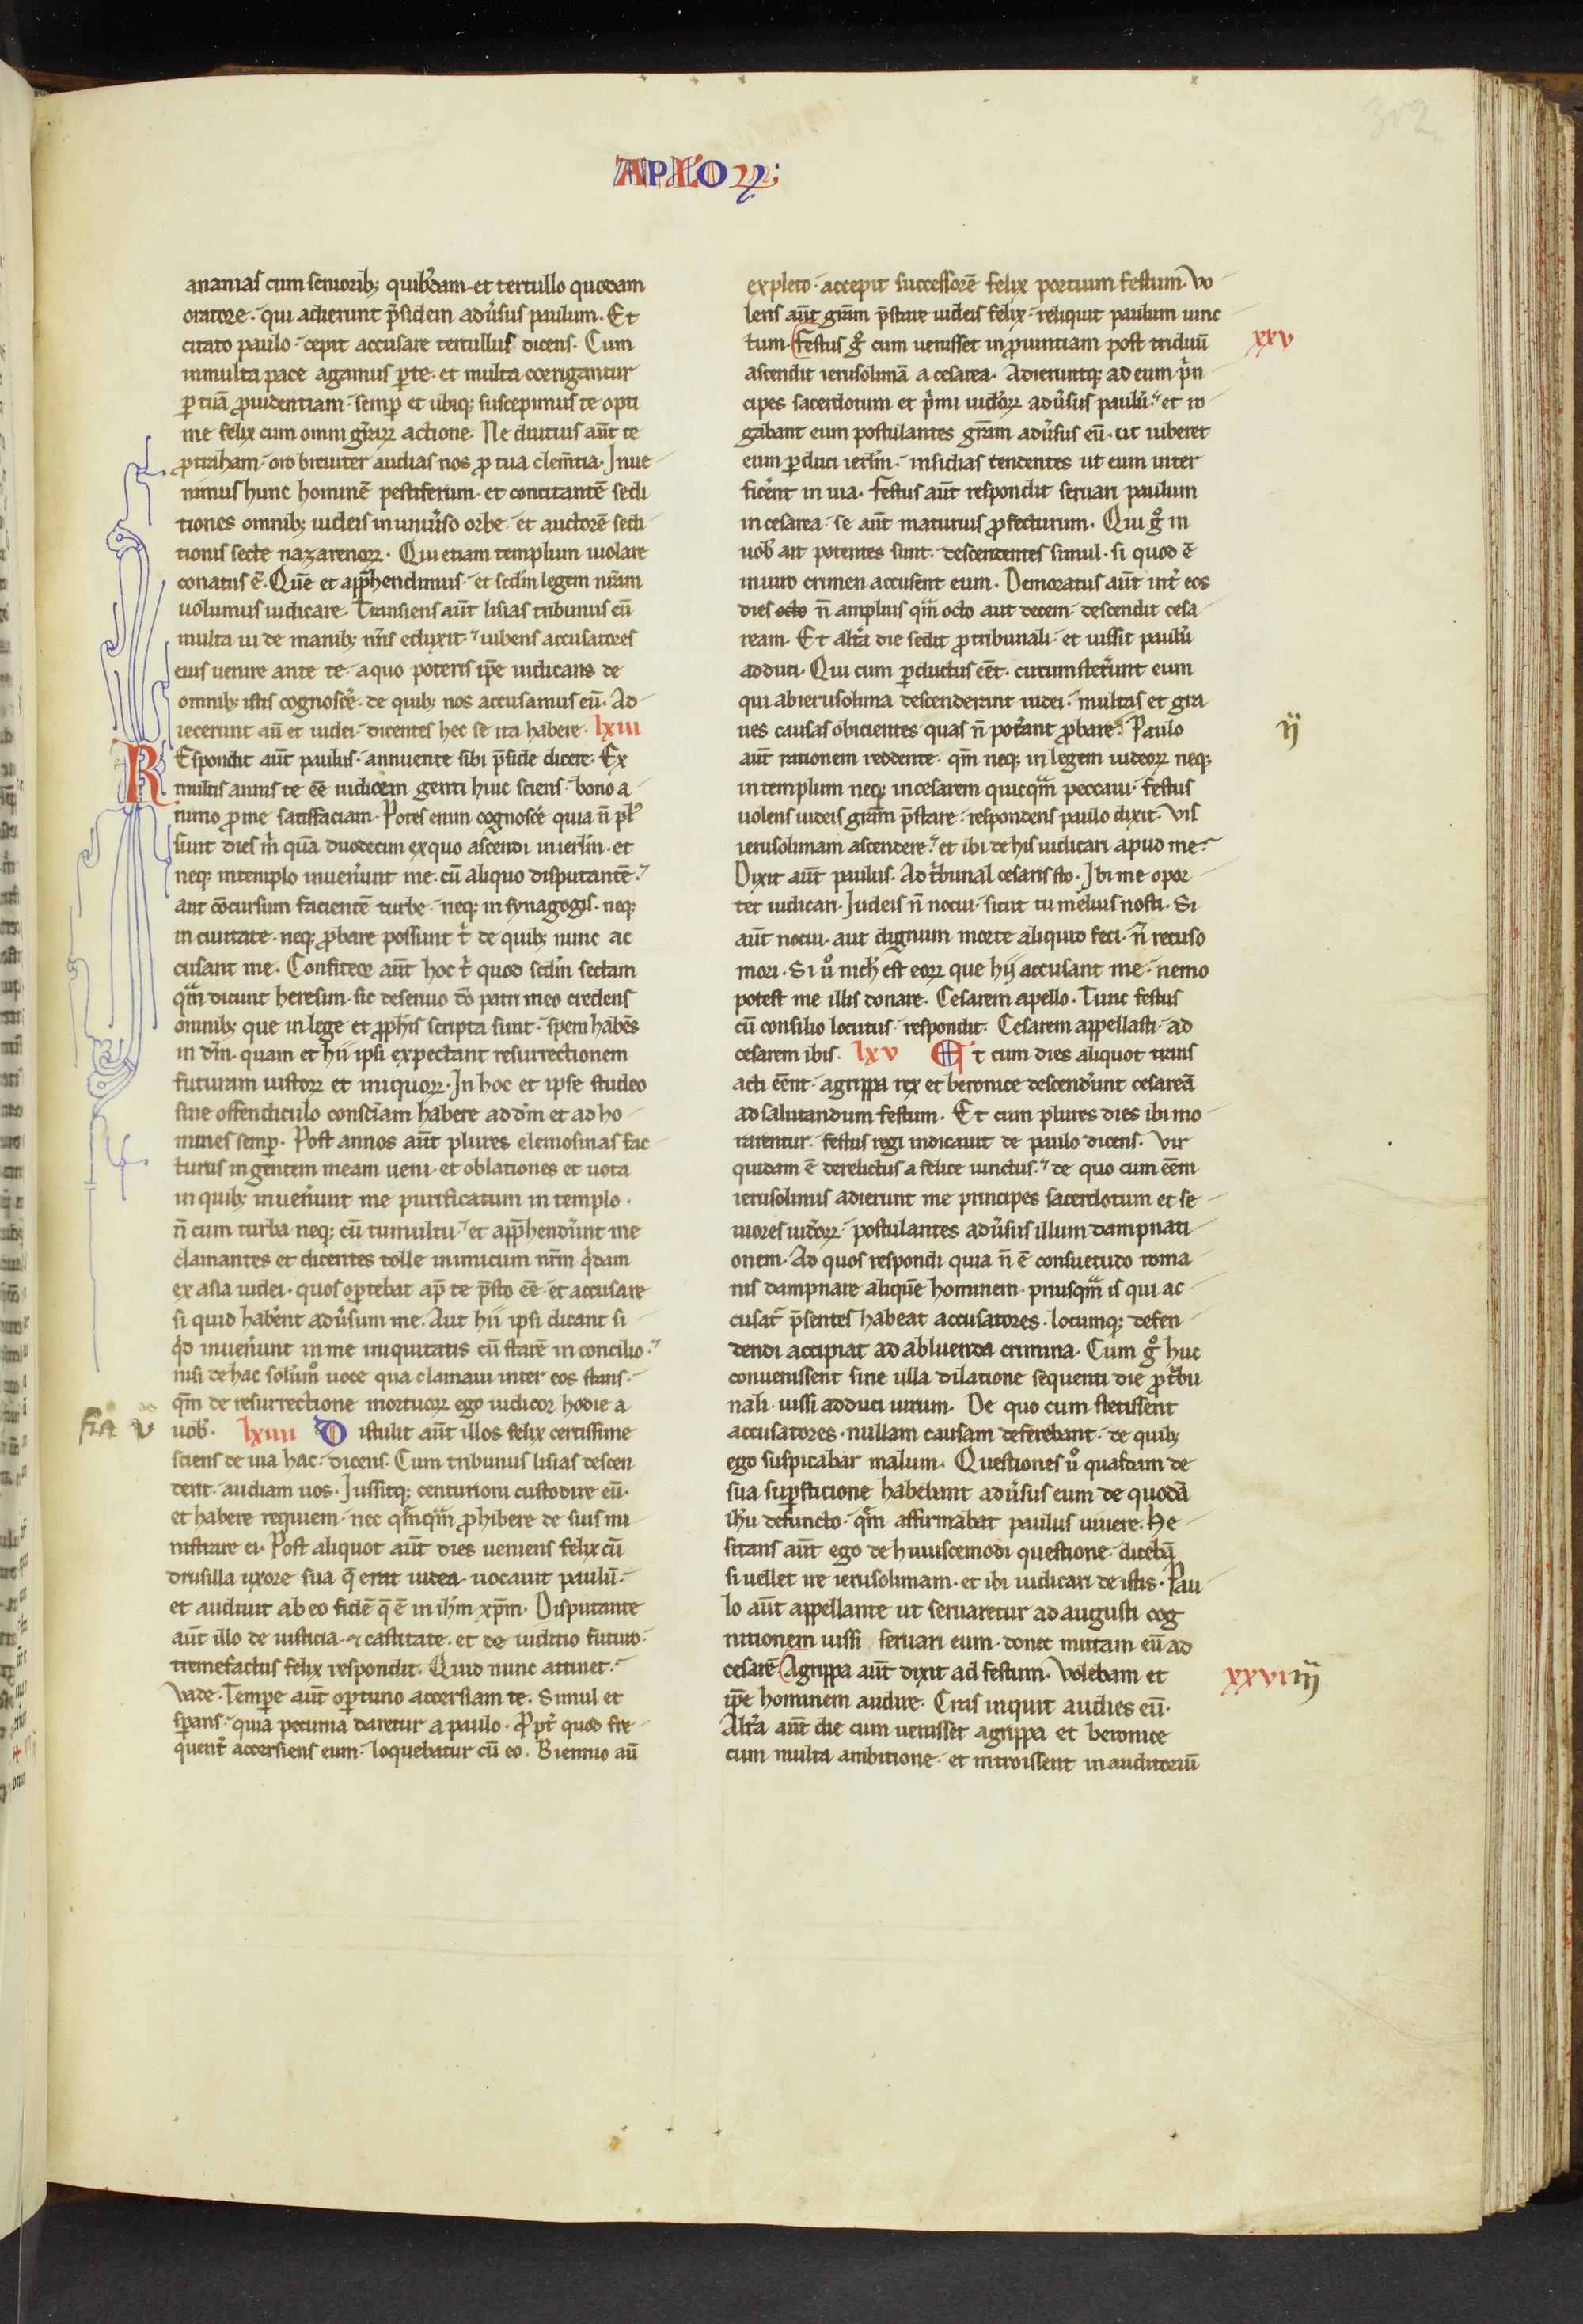 302
APLOꝝ;
ananias cum seniorib; quibꝰdam· et tertullo quodam
oratore· qui adierunt p̄sidem adu̾sus paulum· Et
citato paulo· cepit accusare tertullus dicens· Cum
in multa pace agamus ꝑ te· et multa corrigantur
ꝑ tuā ꝓuidentiam· semꝑ et ubiq; suscepimus te opti
me felix cum omni gr̄aꝝ actione· Ne diutius aūt te
ꝓtraham· oro breuiter audias nos ꝓ tua clem̄tia· Inue-
nimus hunc hominē pestiferum· et concitantē sedi
tiones omnib; iudeis in uniu̾so orbe· et auctorē sedi-
tionis secte nazarenoꝝ· Qui etiam templum uiolare
conatus ē· Quē et app̄hendimus· et scd̄m legem nr̄am
uolumus iudicare· Transiens aūt lisias tribunus cū
multa ui de manib; nr̄is eduxit· iubens accusatores
eius uenire ante te· a quo poteris ip̄e iudicans de
omnib; istis cognosce̾· de quib; nos accusamus eū· Ad-
iecerunt aū et iudei· dicentes hec se ita habere· lxiii
REspondit aūt paulus· annuente sibi p̄side dicere· Ex
multis annis te ēē iudicem genti huic sciens· bono a-
nimo ꝓ me satisfaciam· Potes enim cognosce̾ quia n̄ plꝰ
sunt dies m̄ quā duodecim ex quo ascendi in ierl̄m· et
neq; in templo inuen̾unt me· cū aliquo disputantē·
aut cōcursum facientē turbe· neq; in synagogis· neq;
in ciuitate· neq; ꝓbare possunt t̾ de quib; nunc ac
cusant me· Confiteor aūt hoc t̾ quod scd̄m sectam
qm̄ dicunt heresim· sic deseruio dō patri meo credens
omnib; que in lege et ꝓph̄is scripta sunt· spem habēs
in dm̄· quam et hii ipsi expectant resurrectionem
futuram iustoꝝ et iniquoꝝ· In hoc et ipse studeo
sine offendiculo consci̾am habere ad dm̄ et ad ho-
mines semꝑ· Post annos aūt plures elemosinas fac-
turus in gentem meam ueni· et oblationes et uota
in quib; inuen̾unt me purificatum in templo·
n̄ cum turba neq; cū tumultu· et app̄hendūnt me
clamantes et dicentes tolle inimicum nr̄m q̾dam
ex asia iudei· quos oꝑtebat ap̄ te p̄sto ēē· et accusare
si quid haben̾t adu̾sum me· Aut hii ipsi dicant si
q̾d inuen̾unt in me iniquitatis cū starē in concilio·
nisi de hac solūmᵒ uoce qua clamaui inter eos stans·
qm̄ de resurrectione mortuoꝝ ego iudicor hodie a
uob̾· lxiiii Distulit aūt illos felix certissime
sciens de uia hac· dicens· Cum tribunus lisias descen
derit· audiam uos· Iussitq; centurioni custodire eū·
et habere requiem· nec qm̄qm̄ ꝓhibere de suis mi-
nistrare ei· Post aliquot aūt dies ueniens felix cū
drusilla uxore sua q̄ erat iudea· uocauit paulū·
et audiuit ab eo fidē q̄ ē in ih̄m xp̄m· Disputante
aūt illo de iusticia· et castitate· et de iuditio futuro·
tremefactus felix respondit· Quid nunc attinet·
Vade· Temꝑe aūt oꝑtuno accersiam te· Simul et
sꝑans· quia pecunia daretur a paulo· Propt̾ quod fre-
quent̾ accersiens eum· loquebatur cū eo· Biennio aū
expleto· accepit successorē felix portium festum· Vo-
lens aūt gr̄am p̄stare iudeis felix· reliquit paulum uinc
tum· Festus gᵒ cum uenisset in ꝓuintiam post triduū
xxv
ascendit ierusolimā a cesarea· Adieruntq; ad eum p̾n-
cipes sacerdotum et p̾mi iudeoꝝ adu̾sus paulū· et ro-
gabant eum postulantes gr̄am adu̾sus eū· ut iuberet
eum ꝑduci ierl̄m· insidias tendentes ut eum inter
fice̾nt in uia· Festus aūt respondit seruari paulum
in cesarea· se aūt maturius ꝓfecturum· Qui gᵒ in
uob̾ ait potentes sunt· descendentes simul· si quod ē
in uiro crimen accusent eum· Demoratus aūt int̾ eos
dies octo n̄ amplius qm̄ octo aut decem· descendit cesa-
ream· Et alt̾a die sedit ꝓ tribunali· et iussit paulū
adduci· Qui cum ꝑductus eēt· circumstet̾unt eum
qui ab ierusolima descenderant iudei· multas et gra
ues causas obicientes quas n̄ pot̾ant ꝓbare· Paulo
ij
aūt rationem reddente· qm̄ neq; in legem iudeoꝝ neq;
in templum neq; in cesarem quicqm̄ peccaui· Festus
uolens iudeis gram̄ p̄stare· respondens paulo dixit· Vis
ierusolimam ascendere· et ibi de his iudicari apud me·
Dixit aūt paulus· Ad t̾bunal cesaris sto· Ibi me opor-
tet iudicari· Iudeis n̄ nocui· sicut tu melius nosti· Si
aūt nocui· aut dignum morte aliquid feci· n̄ recuso
mori· Si u̾ᵒ nich̾ est eoꝝ que hij accusant me· nemo
potest me illis donare· Cesarem apello· Tunc festus
cū consilio locutus· respondit· Cesarem appellasti· ad
cesarem ibis· lxv Et cum dies aliquot trans
acti eēnt· agrippa rex et beronice descend̾unt cesareā
ad salutandum festum· Et cum plures dies ibi mo-
rarentur· festus regi indicauit de paulo dicens· Vir
quidam ē derelictus a felice uinctus· de quo cum eēm
ierusolimis adierunt me principes sacerdotum et se-
niores iudeoꝝ· postulantes adu̾sus illum dampnati-
onem· Ad quos respondi quia n̄ ē consuetudo roma-
nis dampnare aliquē hominem· priusqm̄ is qui ac-
cusat̾ p̄sentes habeat accusatores· locumq; defen-
dendi accipiat ad abluenda crimina· Cum gᵒ huc
conuenissent sine ulla dilatione sequenti die ꝓ t̾bu
nali· iussi adduci uirum· De quo cum stetissent
accusatores· nullam causam deferebant· de quib;
ego suspicabar malum· Questiones u̾ᵒ quasdam de
sua suꝑsticione habebant adu̾sus eum de quodā
ih̄u defuncto· qm̄ affirmabat paulus uiuere· He-
sitans aūt ego de huiuscemodi questione· diceb̄ā
si uellet ire ierusolimam· et ibi iudicari de istis· Pau-
lo aūt appellante ut seruaretur ad augusti cog
nitionem iussi seruari eum· donec mittam eū ad
cesarē Agrippa aūt dixit ad festum· Volebam et
xxvi iij
ip̄e hominem audire· Cras inquit audies eū·
Alt̾a aūt die cum uenisset agrippa et beronice
cum multa ambitione· et introissent in auditoriū